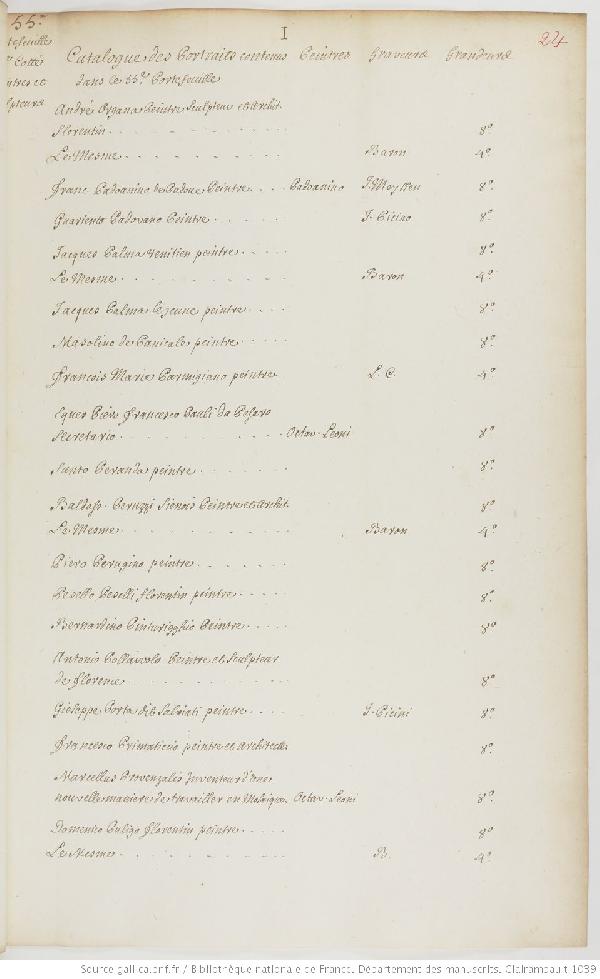 55.e
I
24
Catalogue des Portraits contenus Peintres Graveurs Grandeurs
dans le 55.e Portefeuille
André Organa Peintre Sculpteur et Archit.
florentin 8.o
Le Mesme Baron 4.o
franc Padoanino de Padoue Peintre Padoanino 8.o
Guariento Padovano Peintre J. Picino 8.o
Jacques Palma Venitien peintre 8.o
Le Mesme Baron 4.o
Jacques Palma le jeune peintre 8.o
Masolino de Panicale peintre 8.o
francois Maria Parmigiano peintre L. C. 4.o
Eques Piero francesco Pauli da Pesaro
Secretario Octav. Leoni 8.o
Santo Peranda peintre 8.o
Baldass. Peruzzi Siennois Peintre et Archit. 8.o
Le Mesme Baron 4.o
Piero Perugino peintre 8.o
Pesello Peselli florentin peintre 8.o
Bernardino Pinturigghio Peintre 8.o
Antonio Pollaivolo Peintre et Sculpteur
de florence 8.o
Giuseppe Porta dit Salviati peintre J. Picini 8.o
francesco Primaticcio peintre et architecte 8.o
Marcellus Provenzalis Inventeur d'une
nouvelle maniere de travailler en Mosaique Octav. Leoni 8.o
Domenico Puligo florentin peintre 8.o
Le Mesme B. 4.o
Source gallica.bnf.fr / Bibliothèque nationale de France. Département des manuscrits. Clairambault 1039